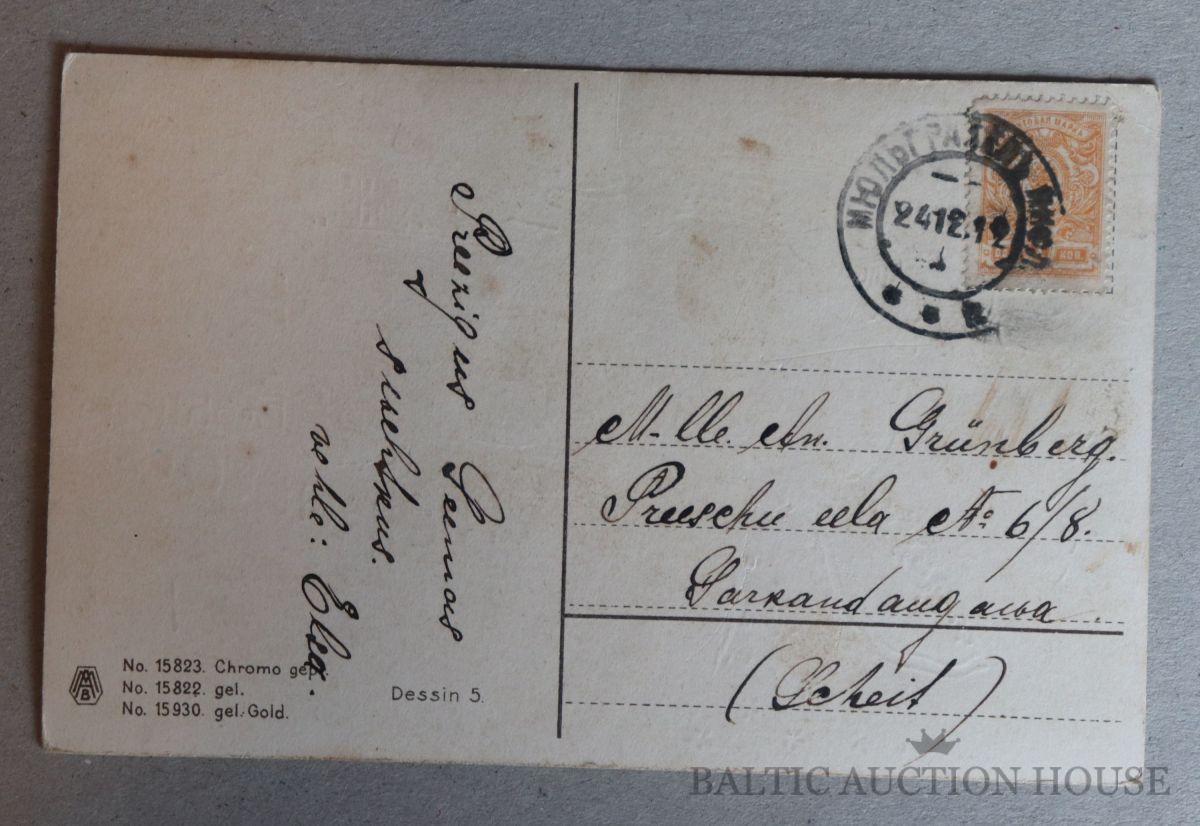 Preezigus Seemas
swehtkus.
wehle: Elsa.
No. 15823. Chromo gel.
No. 15822. gel.
No. 15930. gel. Gold.
Dessin 5.
МЮЛЬГРАБЕНЪ ЛИФЛ
24.12.12
КОП.
M-lle. An. Grünberg.
Preeschu eela No 6/8.
Sarkandaugawa.
(Scheit)
BALTIC AUCTION HOUSE